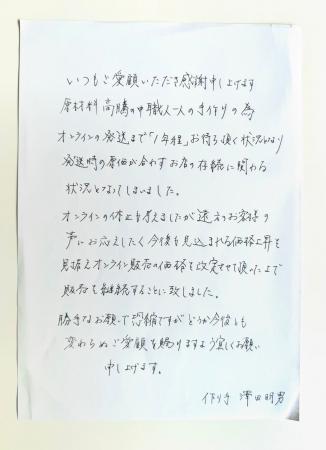 いつもご愛顧いただき感謝申し上げます
原材料高騰の中職人一人の手作りの為
オンラインの発送まで「1年程」お待ち頂く状況になり
発送時の原価が合わずお店の存続に関わる
状況となってしまいました。
オンラインの休止も考えましたが遠方のお客様の
声にお応えしたく今後も見込まれる価格上昇を
見据えオンライン販売の価格を改定させて頂いた上で
販売を継続することに致しました。
勝手なお願いで恐縮ですがどうか今後も
変わらぬご愛顧を賜りますよう宜しくお願い
申し上げます。
作り手 澤田明男